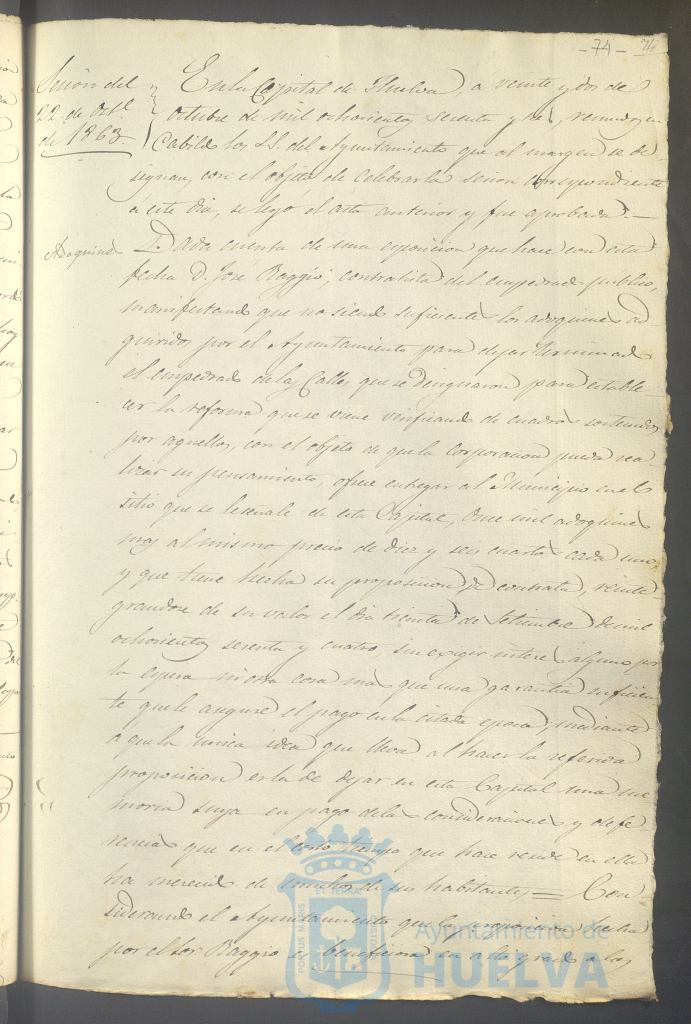 - 74 - 74
Sesion del
22 de Octe.
de 1863.
En la Capital de Huelva, a veinte y dos de
Octubre de mil ochocientos sesenta y tres, reunidos en
Cabildo los S.S. del Ayuntamiento que al margen se de-
signan, con el objeto de celebrar la sesion correspondiente
a este dia, se leyó el acta anterior y fue aprobada.
Adoquines
Dada cuenta de una esposicion que hace con esta
fecha D. Jose Raggio, contratista del empedrado publico,
manifestando que no siendo suficientes los adoquines ad-
quiridos por el Ayuntamiento para dejar terminado
el empedrado de las Calles que se designaron para estable-
cer la reforma que se viene verificando de cuadros sostenidos
por aquellos, con el objeto de que la Corporacion pueda rea-
lizar su pensamiento, ofrece entregar al Municipio en el
sitio que se le señale de esta Capital, once mil adoquines
mas al mismo precio de diez y seis cuartos cada uno,
y que tiene hecha su proposicion de contrata, reinte-
grandose de su valor el dia treinta de Setiembre de mil
ochocientos sesenta y cuatro sin exigir interes alguno por
la espera ni otra cosa mas que una garantia suficien-
te que le asegure el pago en la citada epoca; mediante
a que la unica idea que lleva al hacer la referida
proposicion es la de dejar en esta Capital una me-
moria suya en pago de las consideraciones y defe-
rencias que en el corto tiempo que hace reside en ella
ha merecido de muchos de sus habitantes = Con-
siderando el Ayuntamiento que la proposicion hecha
por el Sor. Raggio es beneficiosa en alto grado a los
PORTUS MARIS ET TERRAE CUSTODIA
Ayuntamiento de
HUELVA